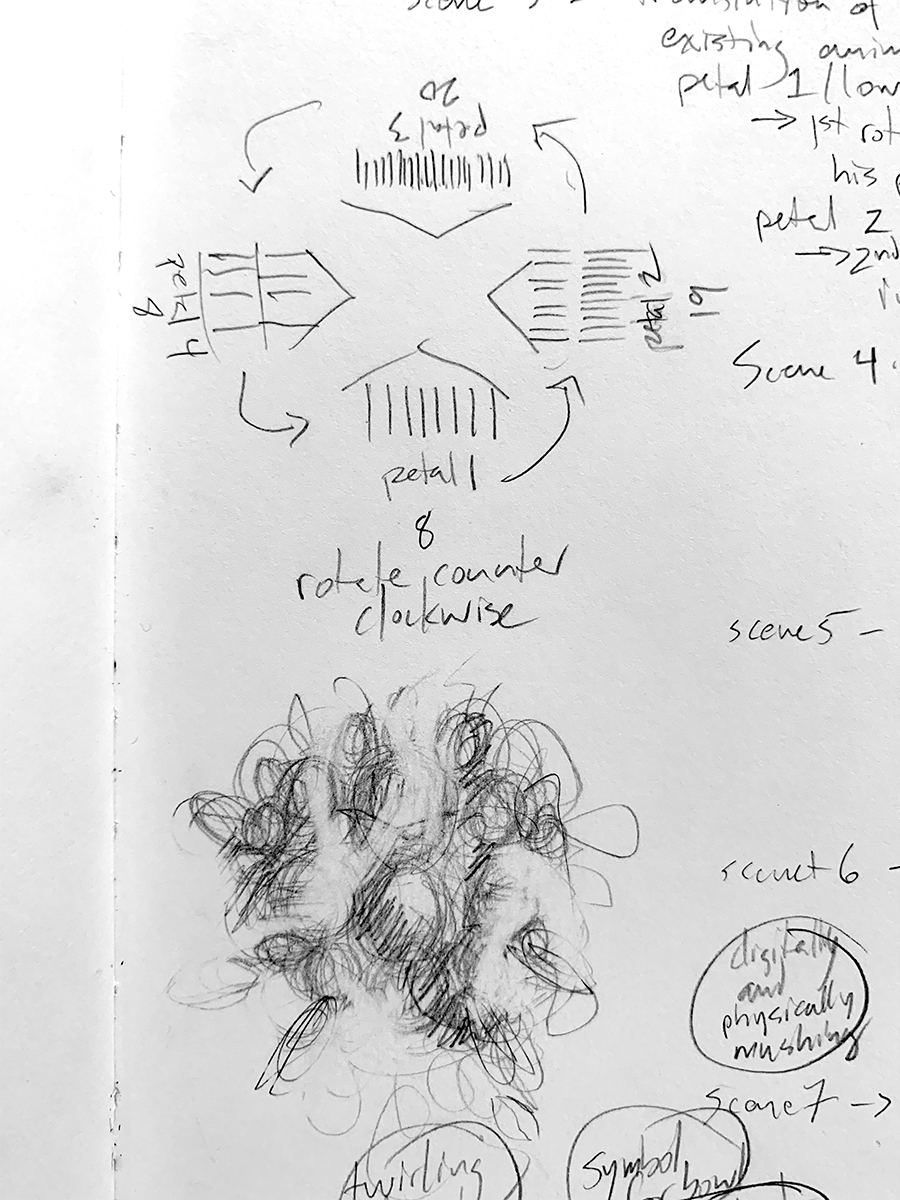 scene 3 - translation of
existing anim
petal 1/low
→ 1st rot
his p
petal 2
→ 2nd
petal 3
20
petal 4
8
petal 2
19
petal 1
8
rotate counter
clockwise
Scene 4
scene 5 -
scene 6 -
digitally
and
physically
mushing
scene 7 →
twirling
symbol